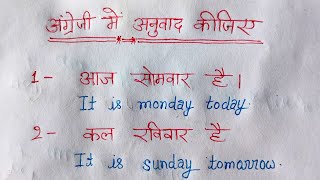 अंग्रेजी में अनुवाद कीजिए
1- आज सोमवार है।
It is monday today.
2- कल रविवार है
It is sunday tomorrow.